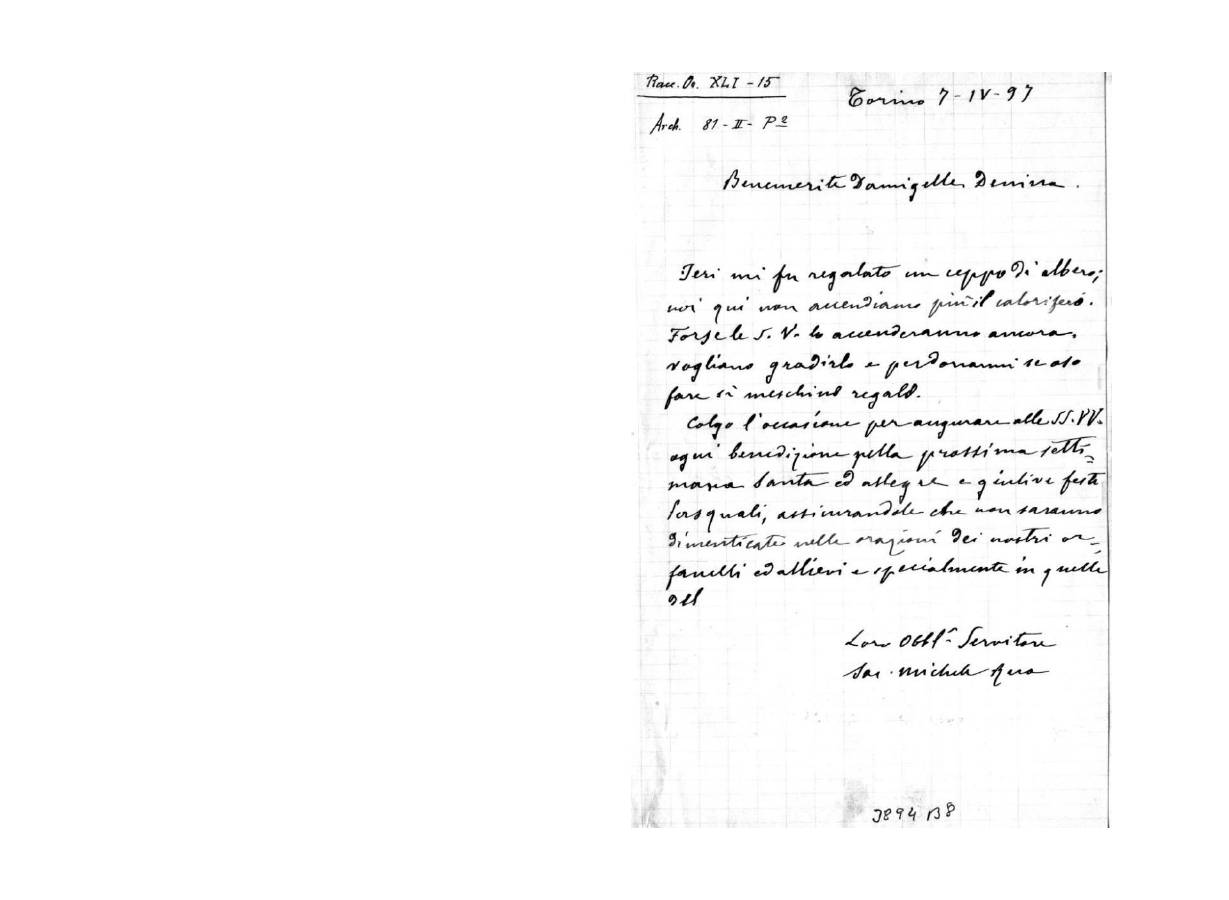 Racc. Or. XLI - 15
Torino 7 - IV - 97
Arch. 81 - II - Pª
Benemerite Damigelle
Ieri mi fu regalato un ceppo di albero;
noi qui non accendiamo più il calorifero.
Forse le S. V. lo accenderanno ancora.
vogliano gradirlo e perdonarmi se oso
fare sì meschino regalo.
Colgo l'occasione per augurare alle SS. VV.
ogni benedizione nella prossima setti=
mana Santa ed allegre e giulive feste
Pasquali, assicurandole che non saranno
dimenticate nelle orazioni dei nostri or=
fanelli ed allievi e specialmente in quelle
del
Loro Obbl. Servitore
Sac. Michele Rua
3894 B8